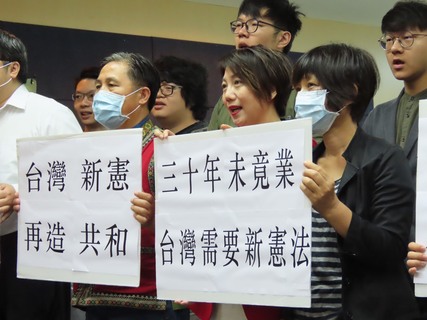 台灣 新憲
再造 共和
三十年未竟業
台灣需要新憲法